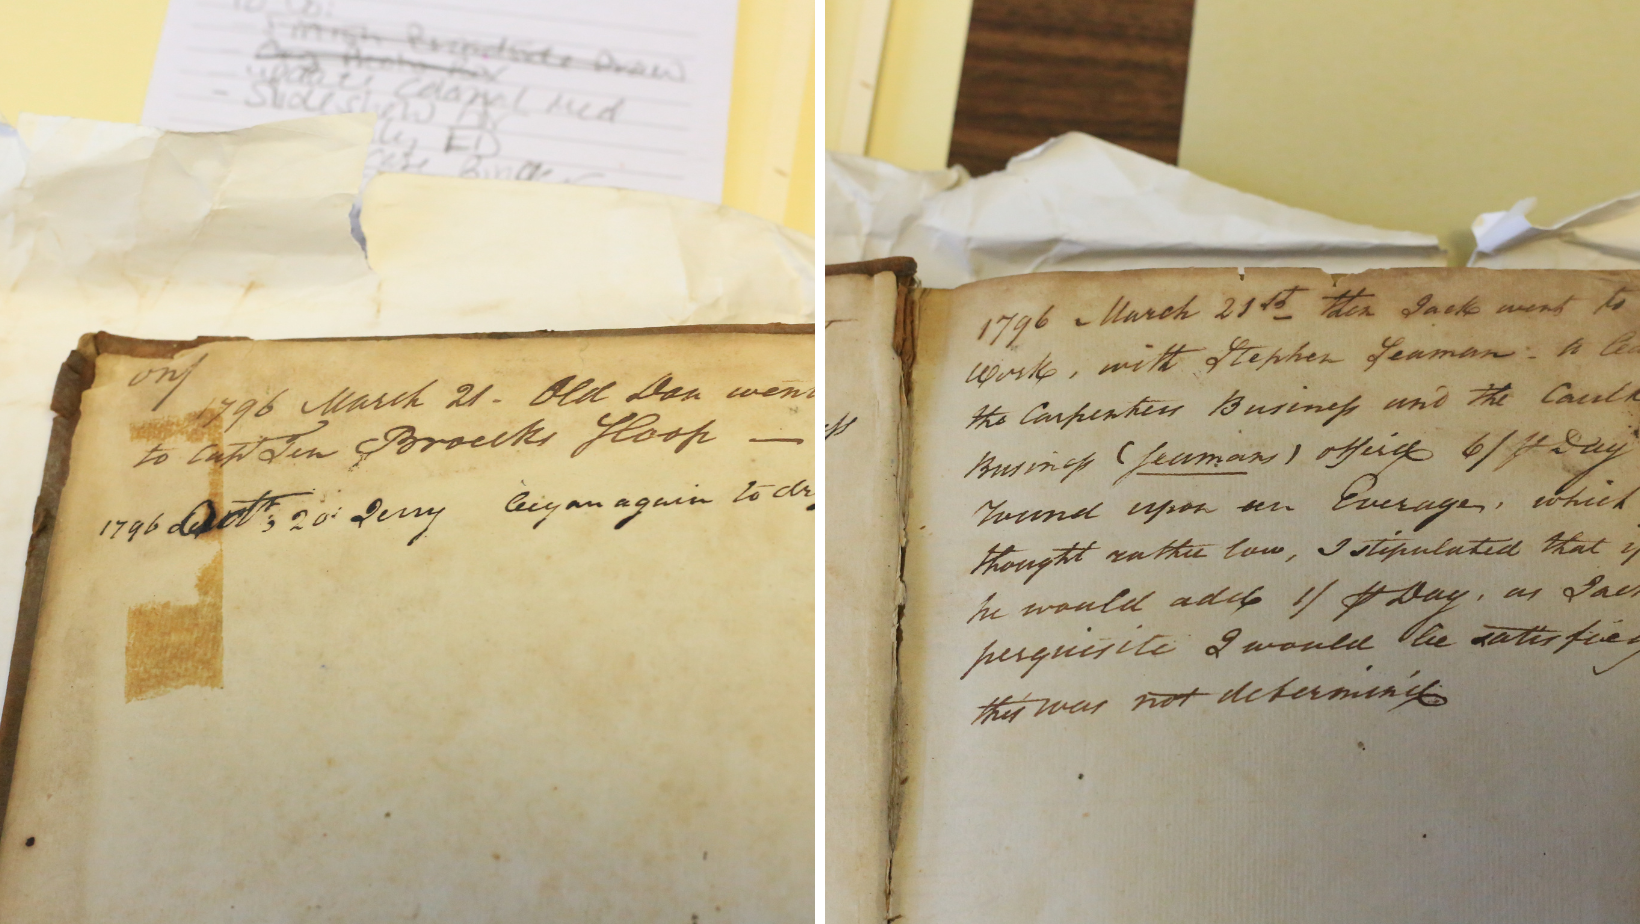 To Do:
update Colonial Med
- Slideshow
ED
1796 March 21 - Old Don went
to Capt Ten Broecks Sloop —
1796 20 Jerry began again to
1796 - March 21st then Jack went to
Work, with Stephen Seaman - to
the Carpenters Business and the Caulk
Business (Seamans) offerd 6/ ⅌ Day
round upon an Everage, which
thought rather low, I stipulated that if
he would add 1/ ⅌ Day, as
perquisite I would be satisfied
this was not determind